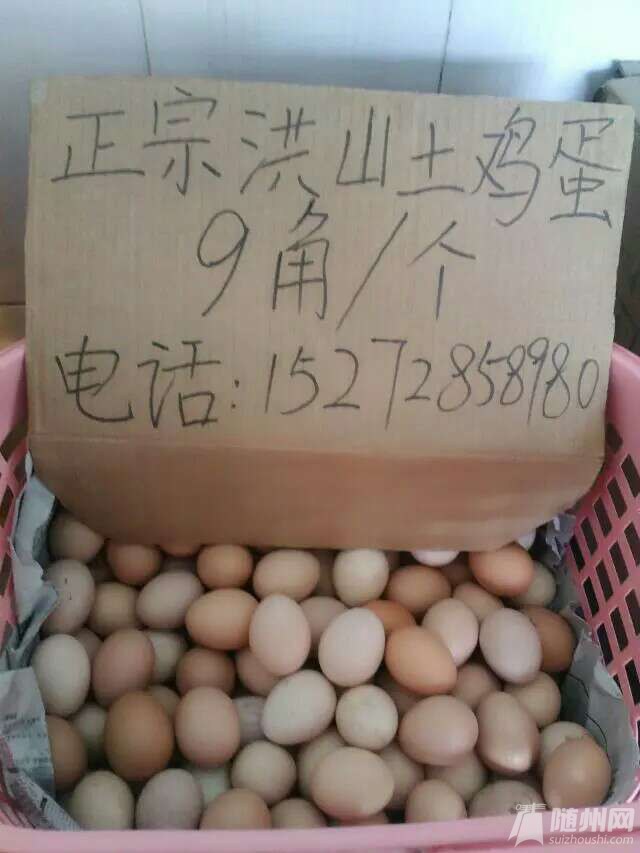 正宗洪山土鸡蛋
9角/个
电话:15272858980
随州网
suizhoushi.com